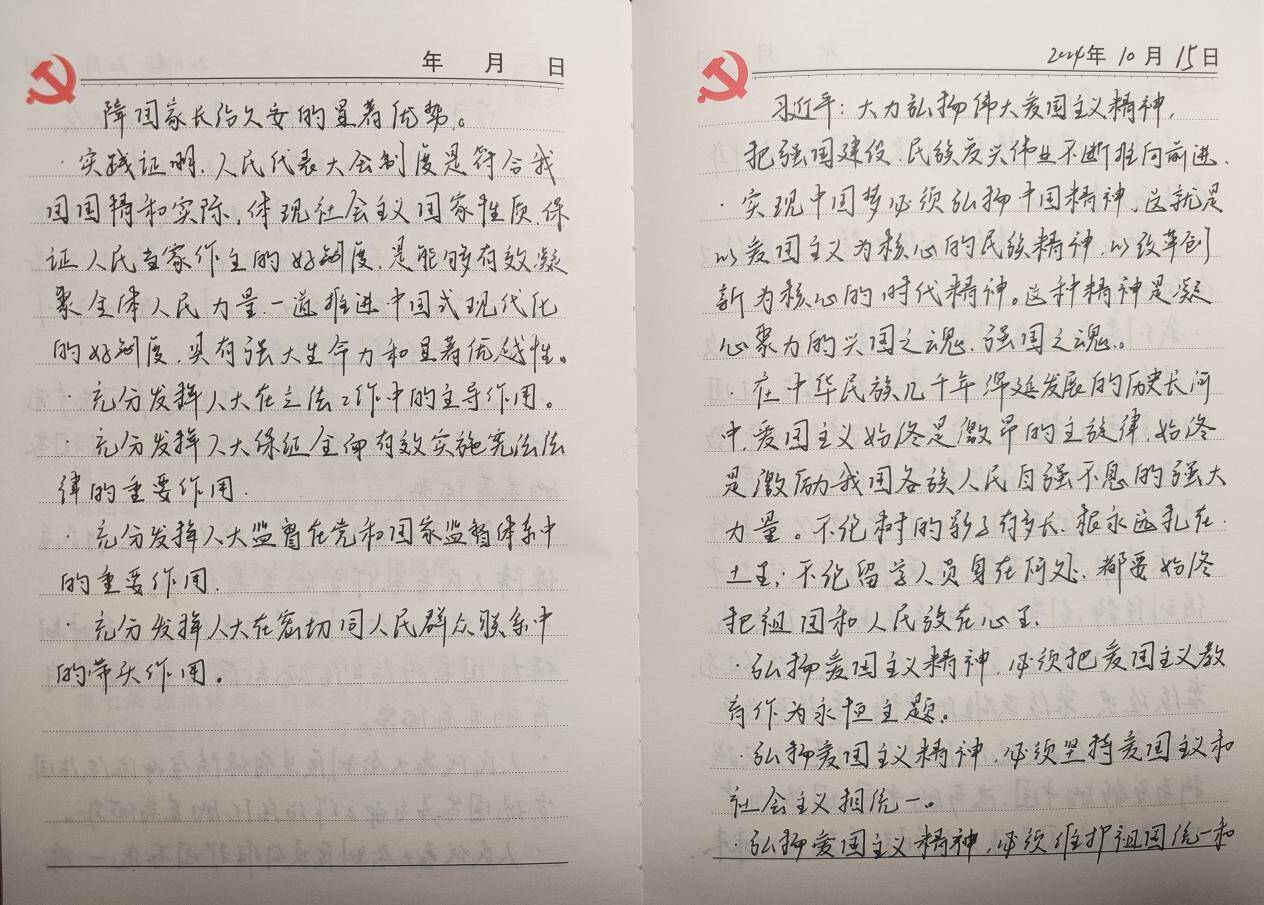 年 月 日
障国家长治久安的显著优势。
·实践证明,人民代表大会制度是符合我
国国情和实际,体现社会主义国家性质,保
证人民当家作主的好制度,是能够有效凝
聚全体人民力量一道推进中国式现代化
的好制度,具有强大生命力和显著优越性。
·充分发挥人大在立法工作中的主导作用。
·充分发挥人大保证全面有效实施宪法法
律的重要作用.
·充分发挥人大监督在党和国家监督体系中
的重要作用.
·充分发挥人大在密切同人民群众联系中
的带头作用。
2024年10月15日
习近平:大力弘扬伟大爱国主义精神,
把强国建设、民族复兴伟业不断推向前进.
·实现中国梦必须弘扬中国精神。这就是
以爱国主义为核心的民族精神,以改革创
新为核心的时代精神。这种精神是凝
心聚力的兴国之魂、强国之魂。
·在中华民族几千年绵延发展的历史长河
中,爱国主义始终是激昂的主旋律,始终
是激励我国各族人民自强不息的强大
力量。不论树的影子有多长,根永远扎在
土里;不论留学人员身在何处,都要始终
把祖国和人民放在心里.
·弘扬爱国主义精神,必须把爱国主义教
育作为永恒主题。
·弘扬爱国主义精神,必须坚持爱国主义和
社会主义相统一。
·弘扬爱国主义精神,必须维护祖国统一和